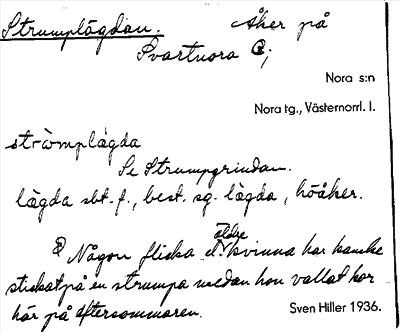 Strumplägdan. Åker på
Svartnora 8;
Nora s:n
Nora tg., Västernorrl. l.
strömplägda
Se Strumpgrindan.
lägda sbt. f., best. sg. lägda, höåker.
Någon flicka el. äldre kvinna har kanske
stickat på en strumpa medan hon vallat kor
här på eftersommaren. Sven Hiller 1936.